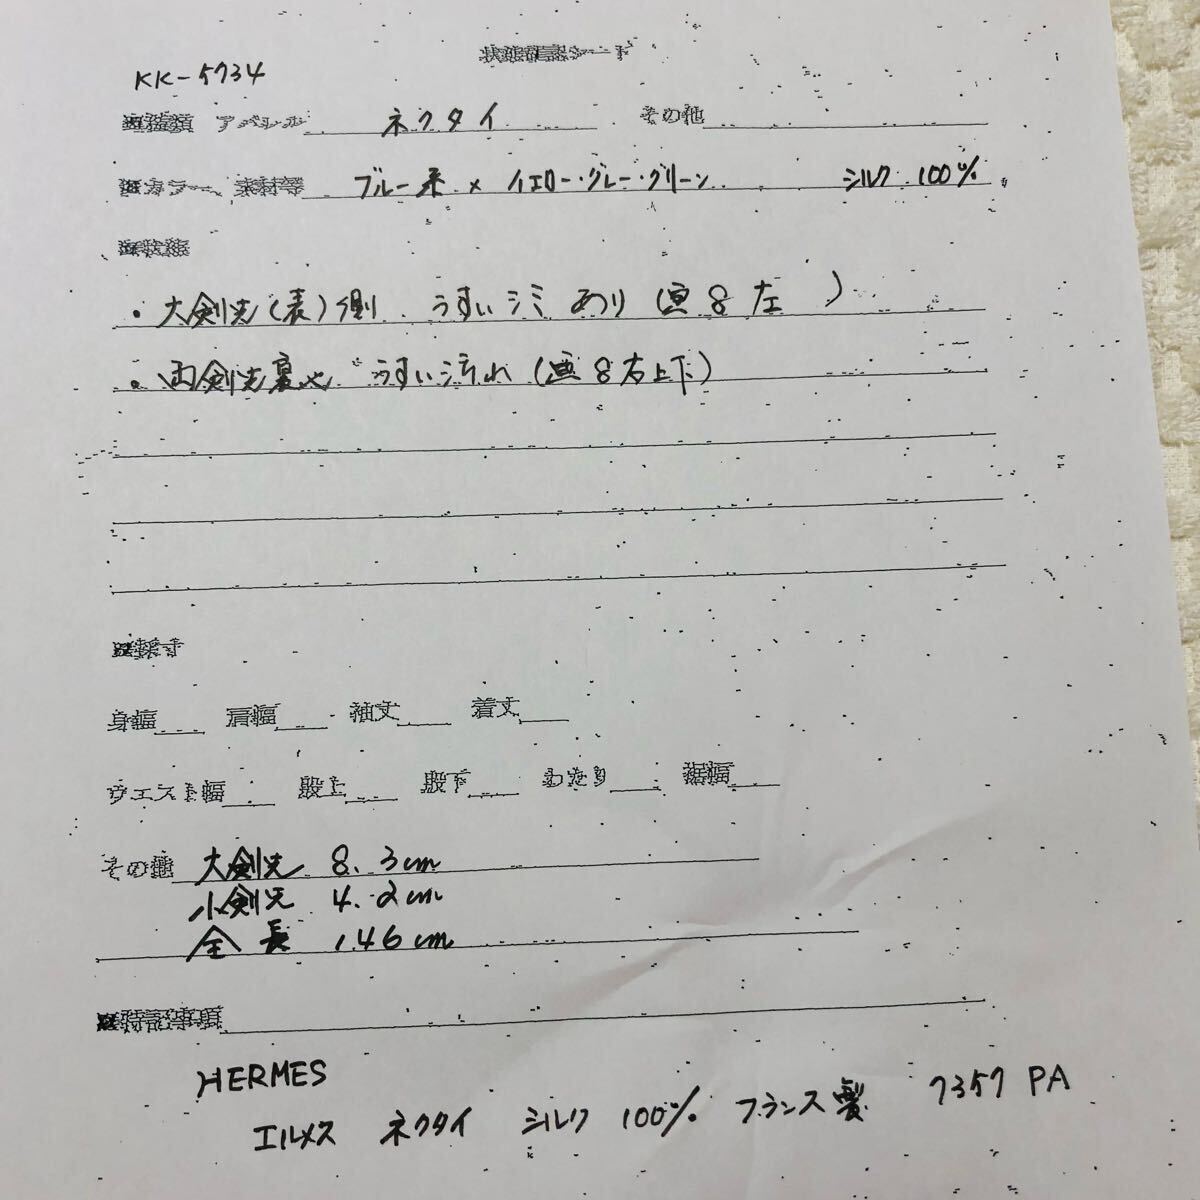 状態確認シート
KK-5734
■種類 アパレル ネクタイ その他
■カラー、素材等 ブルー系 × イエロー・グレー・グリーン シルク 100%
■状態
・大剣先(表)側 うすいシミ あり (画8左 )
・両剣先裏地 うすい汚れ (画8右上下)
■採寸
身幅 肩幅 袖丈 着丈
ウエスト幅 股上 股下 わたり 裾幅
その他 大剣先 8.3cm
小剣先 4.2cm
全長 146cm
■特記事項
HERMES
エルメス ネクタイ シルク 100% フランス製 7357 PA